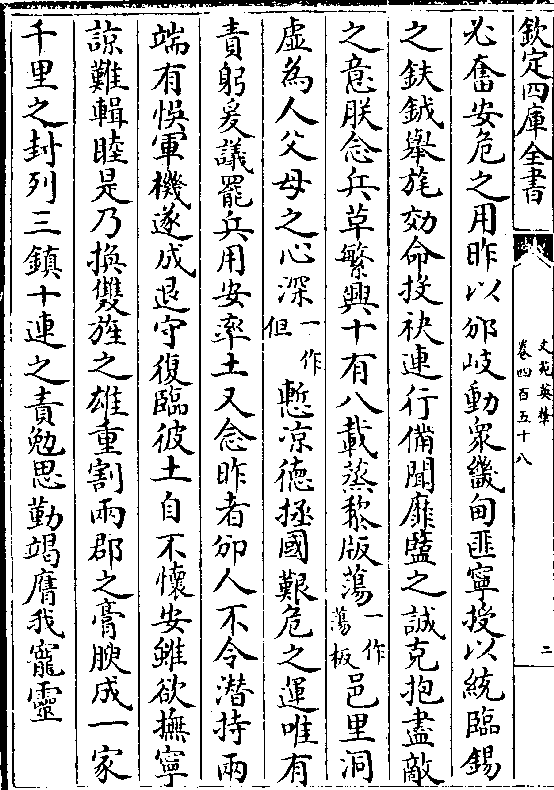 欽定四庫全書
文苑英華
卷四百五十八
二
必奮安危之用昨以邠岐動衆畿甸匪寧授以統臨錫
之鈇鉞舉旄効命投袂連行備聞靡盬之誠克抱盡敵
之意朕念兵草繁興十有八載蒸黎版蕩一作蕩板邑里洞
虚為人父母之心深一作但慙凉德拯國艱危之運唯有
責躬爰議罷兵用安率土又念昨者邠人不令潛持兩
端有悞軍機遂成退守復臨彼土自不懷安雖欲撫寧
諒難輯睦是乃換雙旌之雄重割兩郡之膏腴成一家
千里之封列三鎮十連之責勉思勤竭膺我寵靈